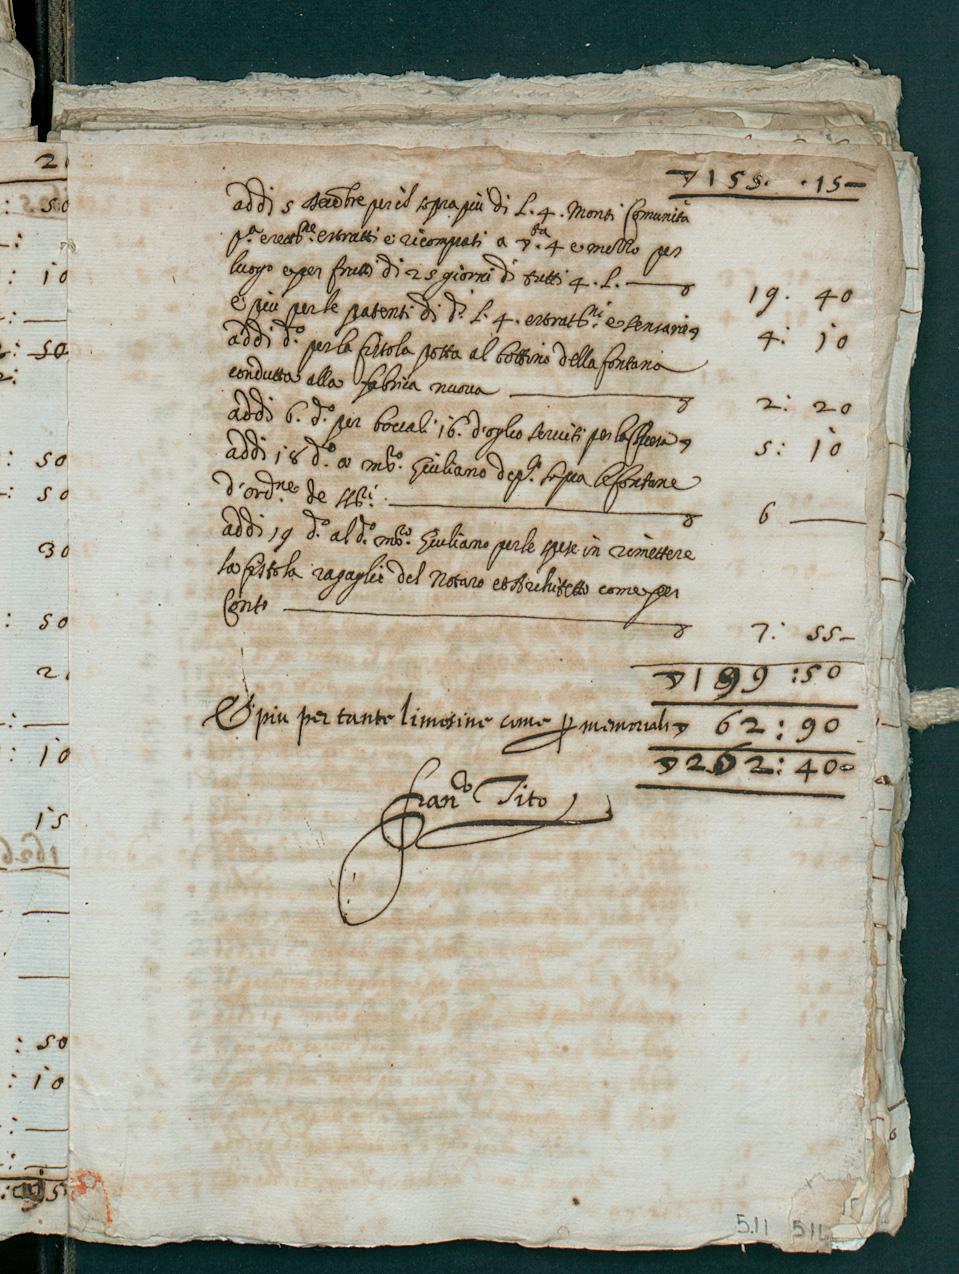 2
: 50
:
: 10
: —
2: 50
2:
: 50
: 50
30
: 50
2
: —
: 10
15
: 50
: 10
: —
▽ 155. · 15—
addi 5 per il sopra più di L. 4. Monti Comunità
p.ª erett.ne estratti e ricompati a ▽.ta 4 e mezzo per
luogo e per frutti di 25 giorni di tutti 4. L. — 19. 40
e più per le patenti di d.i L. 4. estratt.ni e senserie 4: 10
addi d.o per la fistola posta al bottino della fontana
condutta alla fabrica nuova — 2: 20
addi 6. d.o per boccali 16. d'oglio serviti per la 5: 10
addi 18 d.o a m.ro Giuliano sopra le fontane
d'ord.ne de — 6 —
addi 19 d.o al d.o m.ro Giuliano per le spese in rimettere
la fistola ragaglie del Notaro et Architetto come per
Conto — 7: 55—
▽ 199 :50
E più per tante limosine come p memoriali ▽ 62: 90
▽ 262: 40
Fran.co Tito
5.11 511